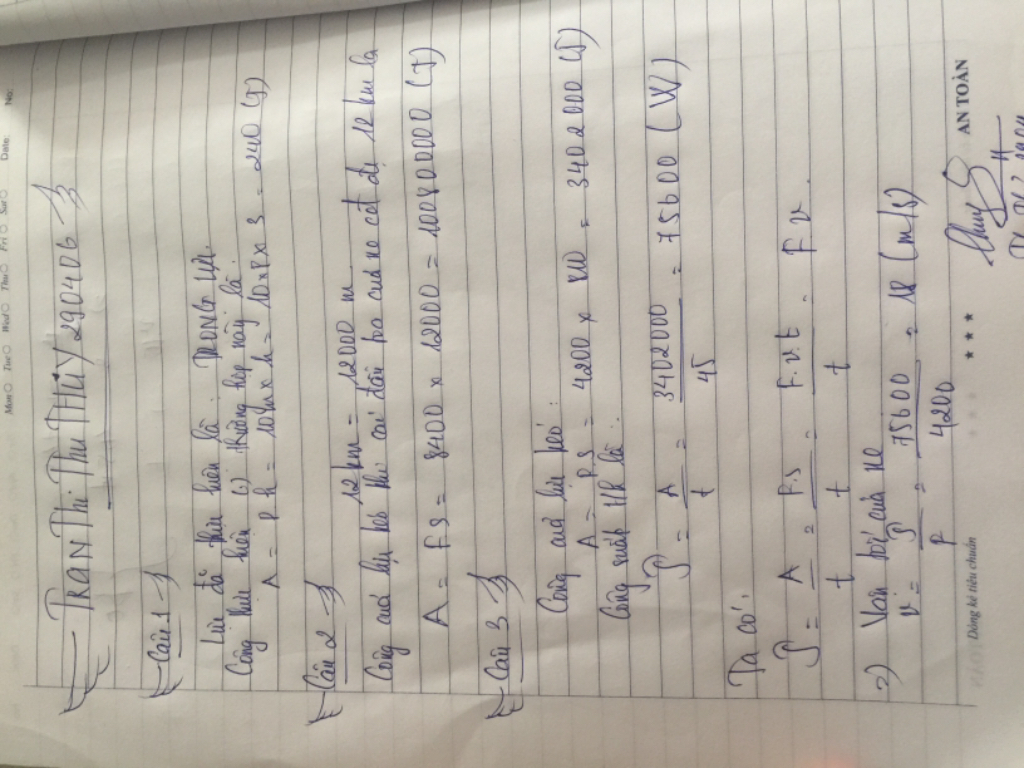 No:
Date
Mon Tue Wed Thu Fri Sat Sun
TRẦN THỊ THU THỦY 290406
Câu 1
Lực đã thực hiện là: TRỌNG LỰC.
Công thực hiện trường hợp này là:
A = P.h = 10m x h = 10.8 x 3 = 240 (J)
Câu 2
12 km = 12000 m
Công của lực kéo khi đi 12 km là
A = F.S = 8400 x 12000 = 100800000 (J)
Câu 3
Công của lực kéo:
A = F.S = 4200 x 810 = 3402000 (J)
Công suất là:
P = A/t = 3402000/45 = 75600 (W)
Ta có:
P = A/t = F.S/t = F.v.t/t = F.v.
=> Vận tốc của xe
v = P/F = 75600/4200 = 18 (m/s)
Dòng kẻ tiêu chuẩn
★ ★ ★ AN TOÀN
Thuy